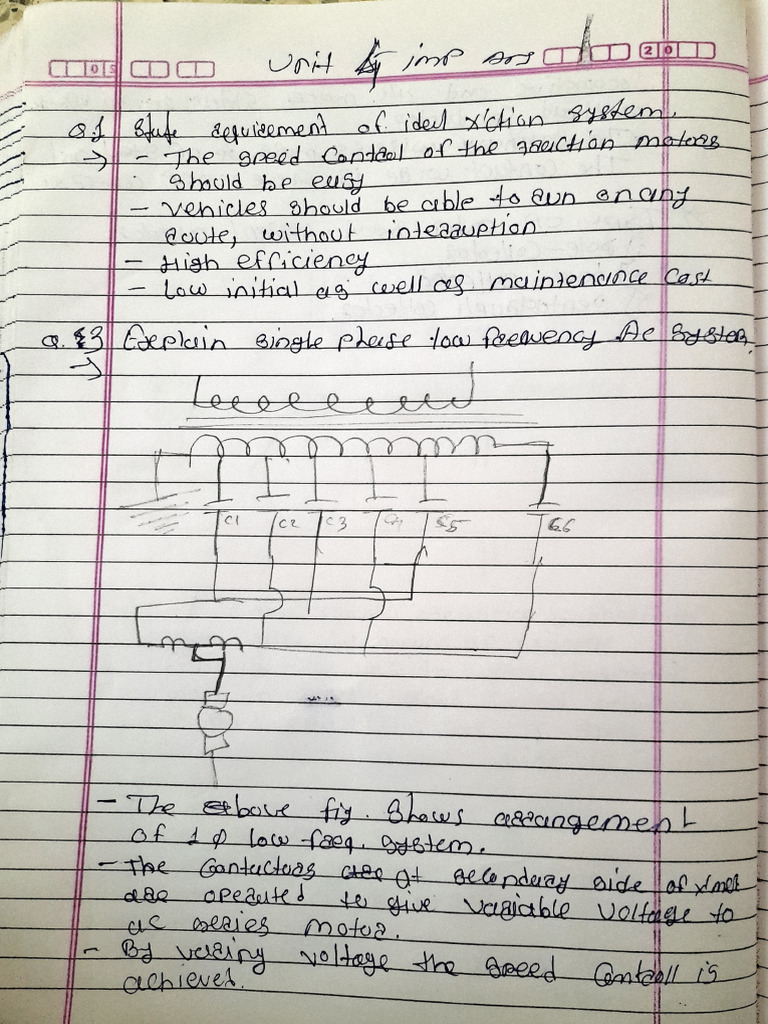 Unit 4 imp Ans
20
Q.1 State requirement of ideal x'ction system.
→ - The speed Control of the traction motors
should be easy
- Vehicles should be able to run on any
route, without interruption
- High efficiency
- Low initial as well as maintenance Cost
Q.3 Explain single phase low frequency Ac system
→
C1 C2 C3 C4 C5 C6
- The above fig. shows arrangement
of 1 φ low freq. system.
- The Contactors at secondary side of xmer
are operated to give variable voltage to
ac series motor.
- By varing voltage the speed Controll is
achieved.